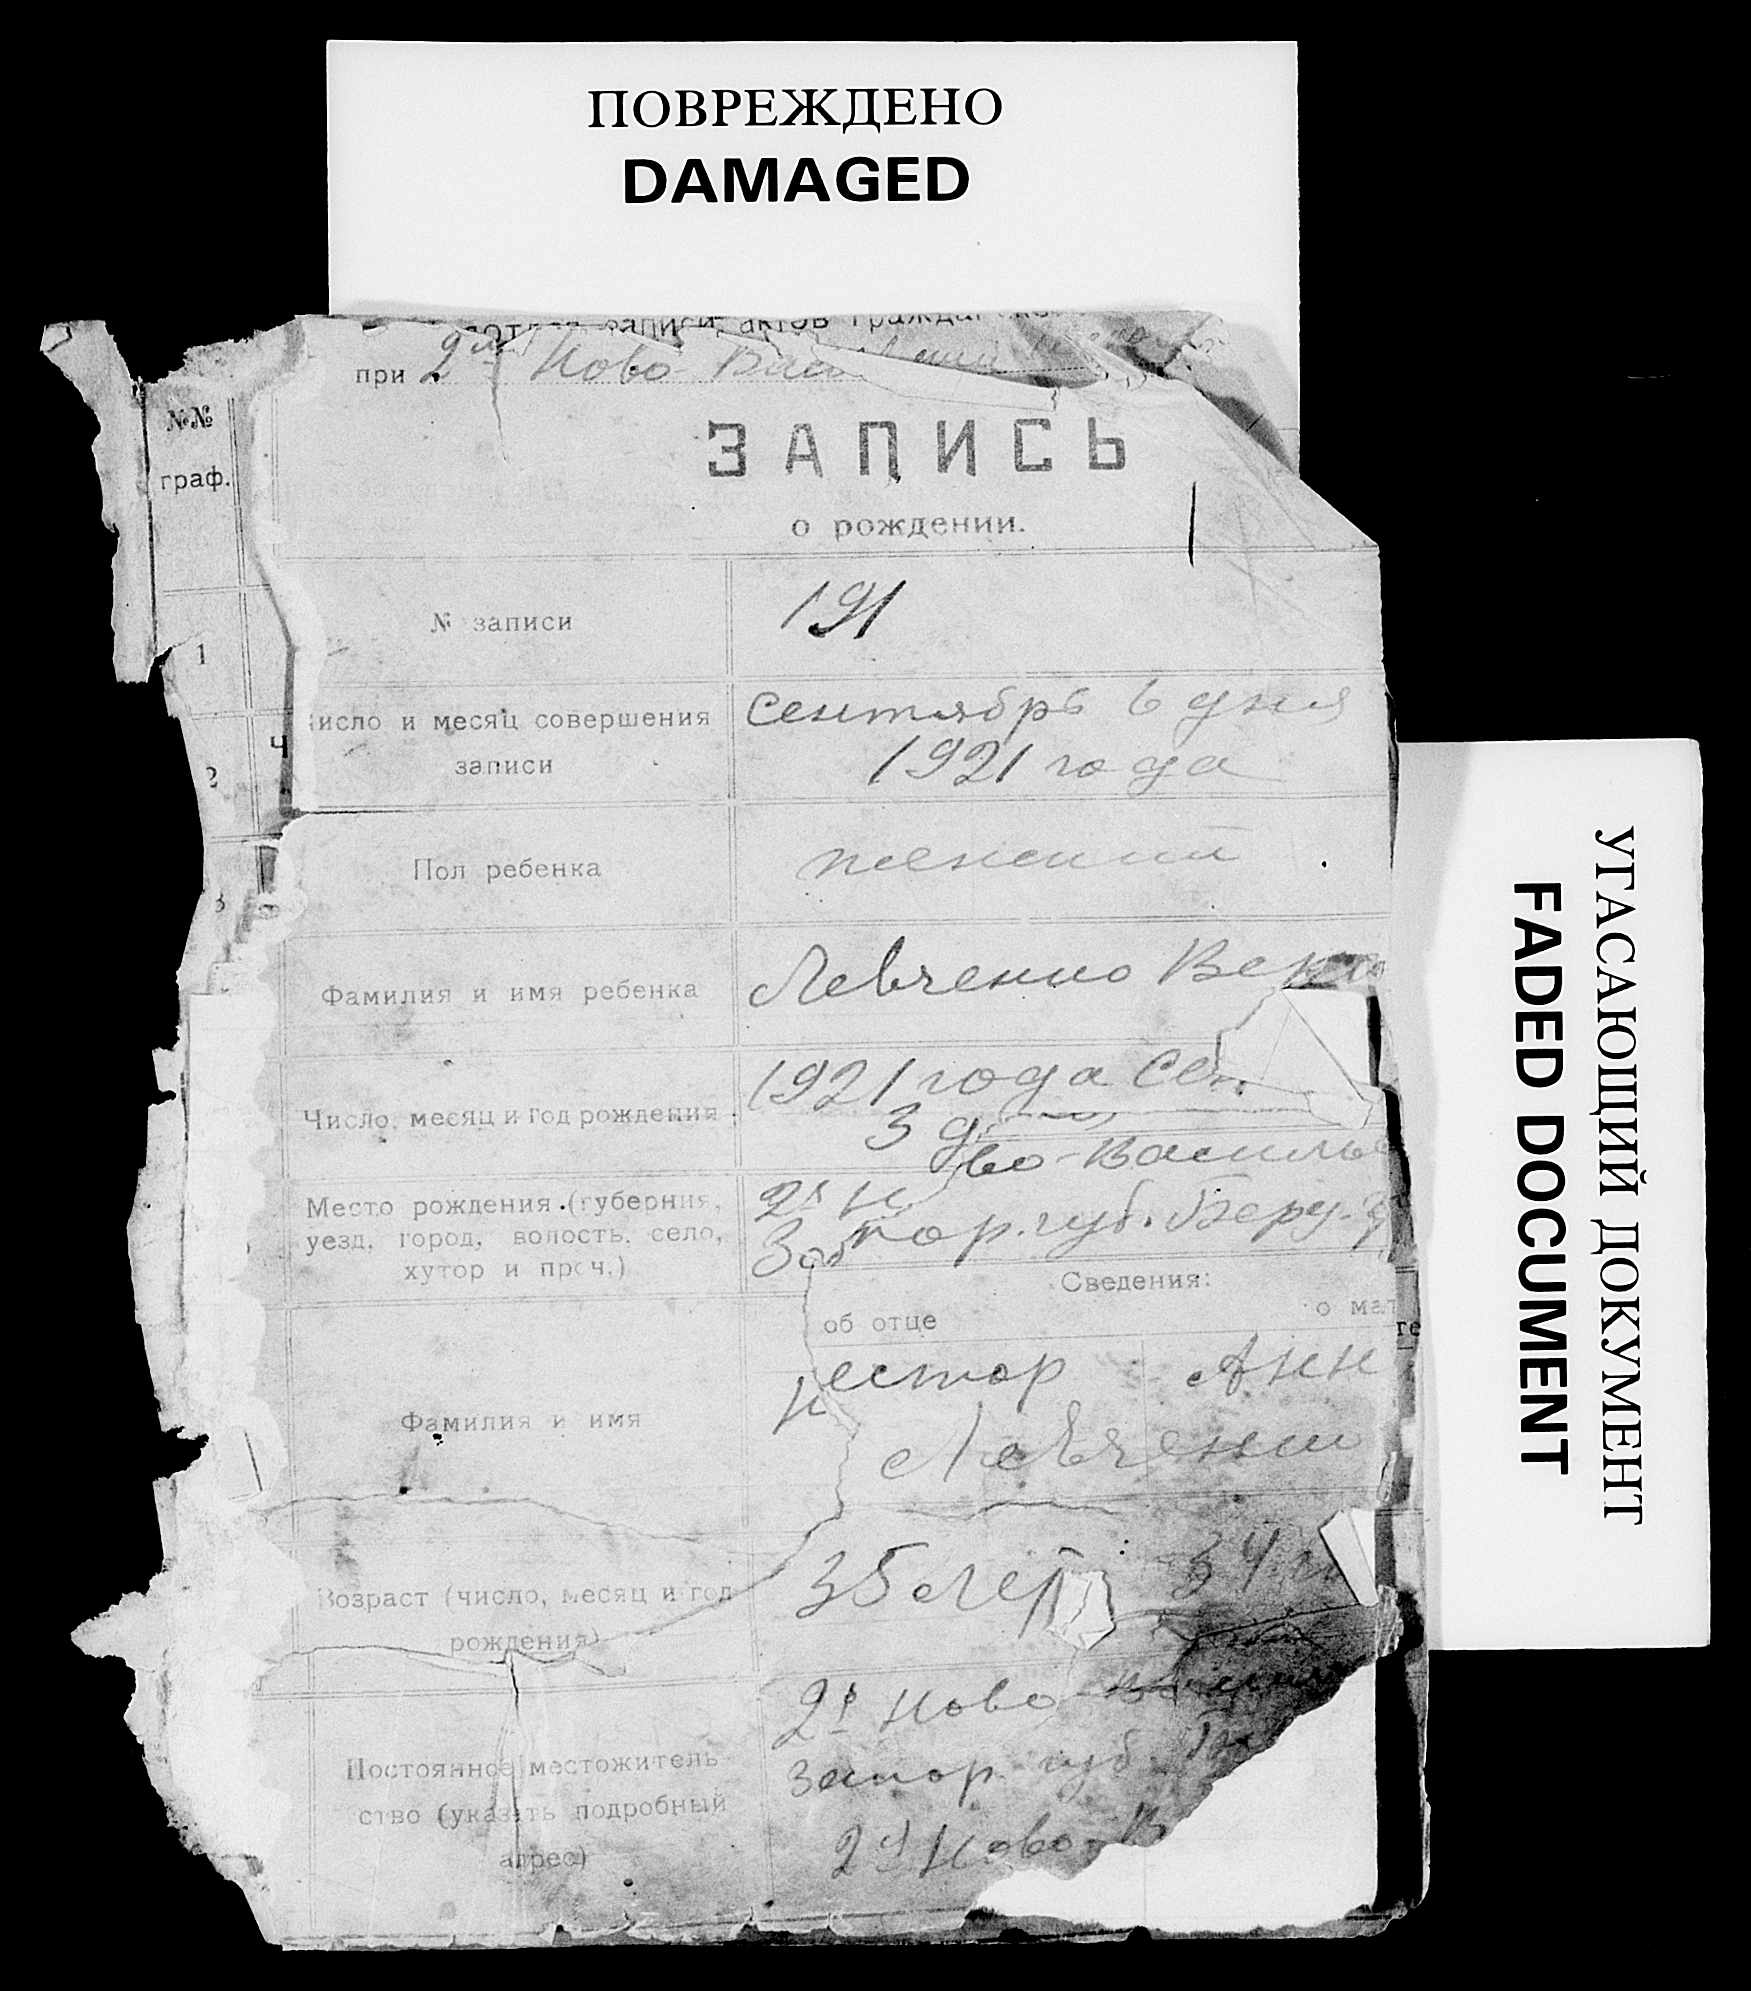 ПОВРЕЖДЕНО
DAMAGED
записи актов
при 2м Ново-
№№
граф.
ЗАПИСЬ
о рождении.
1
№ записи
191
2
Число и месяц совершения
записи
Сентябрь 6 дня
1921 года
3
Пол ребенка
женский
Фамилия и имя ребенка
Левченко
Число, месяц и год рождения
1921 года Сен
3 д
Место рождения (губерния,
уезд, город, волость, село,
хутор и проч.)
во-Василье
2я Н
Запор. губ.
Сведения:
об отце
о мате
Фамилия и имя
Нестор
Анн
Левченко
Возраст (число, месяц и год
рождения)
35 лет
34
Постоянное местожитель
ство (указать подробный
адрес)
2я Ново-
Запор. губ.
2я Ново-В
УГАСАЮЩИЙ ДОКУМЕНТ
FADED DOCUMENT